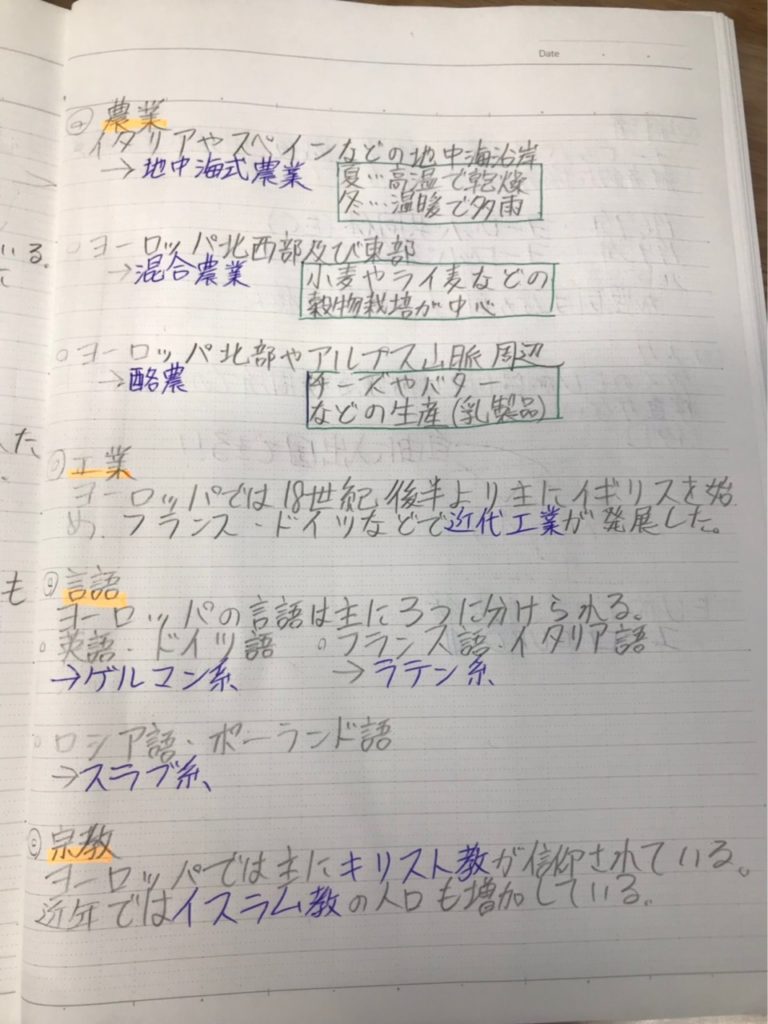 Date
農業
イタリアやスペインなどの地中海沿岸
→地中海式農業
夏…高温で乾燥
冬…温暖で多雨
○ヨーロッパ北西部及び東部
→混合農業
小麦やライ麦などの
穀物栽培が中心
○ヨーロッパ北部やアルプス山脈周辺
→酪農
チーズやバター
などの生産(乳製品)
工業
ヨーロッパでは18世紀後半より主にイギリスを始
め、フランス・ドイツなどで近代工業が発展した。
言語
ヨーロッパの言語は主に3つに分けられる。
○英語・ドイツ語 ○フランス語・イタリア語
→ゲルマン系、 →ラテン系、
○ロシア語・ポーランド語
→スラブ系、
宗教
ヨーロッパでは主にキリスト教が信仰されている。
近年ではイスラム教の人口も増加している。
いる。
た
も